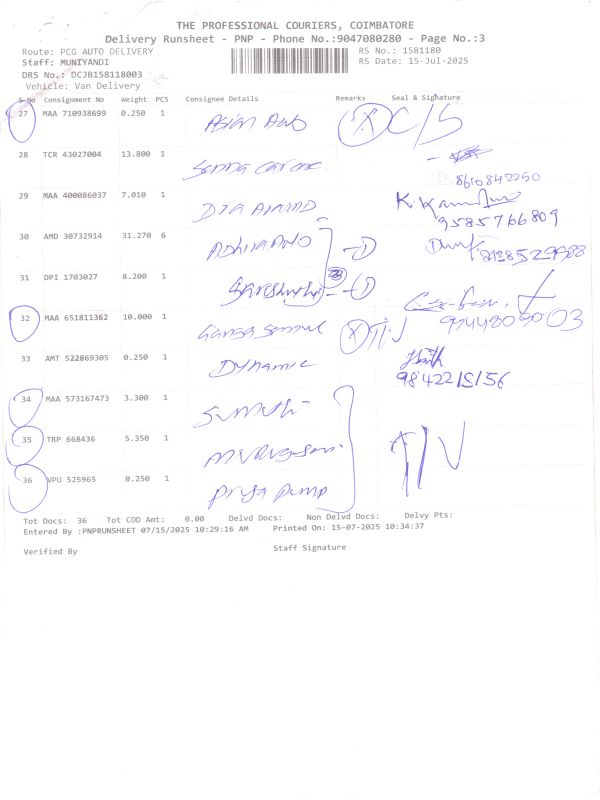 THE PROFESSIONAL COURIERS, COIMBATORE
Delivery Runsheet - PNP - Phone No.:9047080280 - Page No.:3
Route: PCG AUTO DELIVERY RS No.: 1581180
Staff: MUNIYANDI RS Date: 15-Jul-2025
DRS No.: DCJB158118003
Vehicle: Van Delivery
S-No Consignment No Weight PCS Consignee Details Remarks Seal & Signature
27 MAA 710938699 0.250 1 Asian Auto DC/S
28 TCR 43027004 13.800 1 Senna Car care
8610842250
29 MAA 400086037 7.010 1 DTA ANAND K. Kannan
9585766809
30 AMD 30732914 31.270 6 ADHIRA AUTO 1 8428529988
31 DPI 1703027 8.200 1 Sareshwathi 1
32 MAA 651811362 10.000 1 Ganga 9944809003
33 AMT 522869305 0.250 1 Dynamic
9842215156
34 MAA 573167473 3.300 1 Sumathi
35 TRP 668436 5.350 1 Murugesan
36 VPU 525965 0.250 1 Priya Pump
Tot Docs: 36 Tot COD Amt: 0.00 Delvd Docs: Non Delvd Docs: Delvy Pts:
Entered By :PNPRUNSHEET 07/15/2025 10:29:16 AM Printed On: 15-07-2025 10:34:37
Verified By Staff Signature